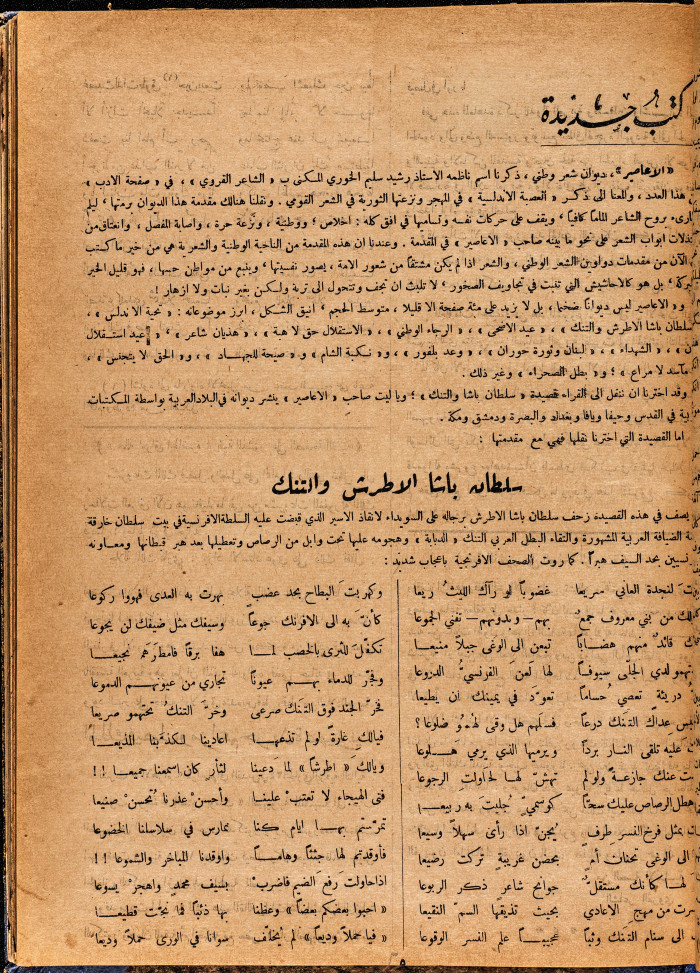 كتب جديدة
« الاعاصير » ، ديوان شعر وطني ، ذكرنا اسم ناظمه الاستاذ رشيد سليم الخوري المكنى ب « الشاعر القروي » ، في « صفحة الادب »
هذا العدد ، والمعنا الى ذكر « العصبة الاندلسية » في المهجر ونزعتها الثورية في الشعر القومي . ونقلنا هنالك مقدمة هذا الديوان برمتها ؛ ليلم
بروح الشاعر الماماً كافياً ؛ ويقف على حركات نفسه وتساميها في افق كله : اخلاص ؛ ووطنية ، ونزعة حرة ، واصابة المفصل ، وانعتاق من
ابواب الشعر على نحو ما بينه صاحب « الاعاصير » في المقدمة . وعندنا ان هذه المقدمة من الناحية الوطنية والشعرية هي من خير ما كتب
الآن من مقدمات دواوين الشعر الوطني ، والشعر اذا لم يكن مشتقاً من شعور الامة ، يصور نفسيتها ؛ وينبع من مواطن حسها ، فهو قليل الخير
بل هو كالحشيش التي تنبت في تجاويف الصخور ؛ لا تلبث ان تجف وتتحول الى تربة ولكن بغير نبات ولا ازهار !
و « الاعاصير ليس ديواناً ضخماً ، بل لا يزيد على مئة صفحة الا قليلا ، متوسط الحجم ؛ انيق الشكل ، ابرز موضوعاته : « تحية الاندلس » ،
سلطان باشا الاطرش والتنك » ، « عيد الاضحى » ، « الرجاء الوطني » ، « الاستقلال حق لا هبة » ، « هذيان شاعر » ؛ « عيد استقلال
« الشهداء » ، « لبنان وثورة حوران » ، « وعد بلفور » ، و « نكبة الشام » و « صيحة للجهاد » ، و « الحق لا يتجنس » ،
مأسد لا مراع » ؛ و « بطل الصحراء » وغير ذلك .
وقد اخترنا ان ننقل الى القراء قصيدة « سلطان باشا والتنك » ؛ ويا ليت صاحب « الاعاصير » ينشر ديوانه في البلاد العربية بواسطة المكتبات
في القدس وحيفا ويافا وبغداد والبصرة ودمشق ومكة .
اما القصيدة التي اخترنا نقلها فهي مع مقدمتها :
سلطان باشا الاطرش والتنك
يصف في هذه القصيدة زحف سلطان باشا الاطرش برجاله على السويداء لانقاذ الاسير الذي قبضت عليه السلطة الافرنسية في بيت سلطان خارقة
الضيافة العربية المشهورة والتقاء البطل العربي التنك « الدبابة » وهجومه عليها تحت وابل من الرصاص وتعطيلها بعد هبر قبطانها ومعاونه
بحد السيف هبراً . كما روت الصحف الافرنجية باعجاب شديد :
لنجدة العاني سريعا غضوباً لو رآك الليث ريعا وكهربت البطاح بحد عضب بهرت به العدى فهووا ركوعا
من بني معروف جمع بهم — وبدونهم — تفني الجموعا كأنّ به الى الافرنك جوعاً وسيفك مثل ضيفك لن يجوعا
قائد منهم هضاباً تبعن الى الوغى جبلاً منيعا تكفل للثرى بالخصب لما هفا برقا فامطرهم نجيعا
لدى الجلّى سيوفاً لها لعن الفرنسي الدروعا وفجر للدماء بهم عيوناً تجاري من عيونهم الدموعا
دريئة تعصي حساما تعود في يمينك ان يطيعا فخرّ الجند فوق التنك صرعى وخرّ التنك تحتهمو صريعا
عداك التنك درعاً فسلهم هل وقى لهمو ضلوعا ؟ فيا لك غارة لو لم تذعها اعادينا لكذّبنا المذيعا
عليه تلقى النار برداً ويرميها الذي يرمي هلوعا ويا لك « اطرشاً » لما دعينا لثأر كان اسمعنا جميعا ! !
عنك جازعة ولو لم تهشّ لها لحاولت الرجوعا فتى الهيجاء لا تعتب علينا وأحسن عذرنا تحسن صنيعا
الرصاص عليك سحّاً كوسمي جلبت به ربيعا تمرستم بها ايام كنا نمارس في سلاسلنا الخضوعا
بمثل فرخ النسر طرف يجنّ اذا رأى سهلاً وسيعا فأوقدتم لها جثثاً وهاماً واوقدنا المباخر والشموعا ! !
الى الوغى تحنان أم بحضن غريبة تركت رضيعا اذا حاولت رفع الضيم فاضرب بسيف محمد واهجر يسوعا
لها كأنك مستقل جوانح شاعر ذكر الربوعا « احبوا بعضكم بعضاً » وعظنا بها ذئباً فما نجّت قطيعا
من مهج الاعادي بحيث تذيقها السم النقيعا « فيا حملاً وديعاً » لم يخلف سوانا في الورى حملاً وديعا
الى سنام التنك وثباً عجيباً علم النسر الوقوعا
٥